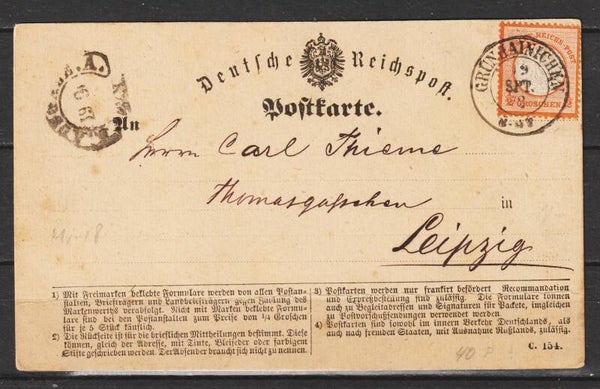 Deutsche Reichspost.
Postkarte.
GRÜNHAINICHEN
9
SPT.
REICHS-POST
GROSCHEN
An
Herrn Carl Thieme
Thomasgässchen
in
Leipzig
1) Mit Freimarken beklebte Formulare werden von allen Postan-
stalten, Briefträgern und Landbriefträgern gegen Zahlung des
Markenwerths verabfolgt. Nicht mit Marken beklebte Formu-
lare sind bei den Postanstalten zum Preise von 1/4 Groschen
für je 5 Stück käuflich.
2) Die Rückseite ist für die brieflichen Mittheilungen bestimmt. Diese
können, gleich der Adresse, mit Tinte, Bleifeder oder farbigem
Stift geschrieben werden. Der Absender braucht sich nicht zu nennen.
3) Postkarten werden nur frankirt befördert Recommandation
und Expreßbestellung sind zulässig. Die Formulare können
auch zu Begleitadressen und Signaturen für Packete, imgleichen
zu Postvorschußsendungen verwendet werden.
4) Postkarten sind sowohl im innern Verkehr Deutschlands, als
auch nach fremden Staaten, mit Ausnahme Rußlands, zulässig.
C. 154.